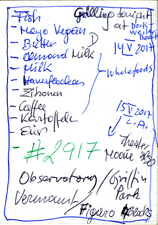 Fish
Mayo Vegan
Butter
Almond Milk
Milk
Haferflocken
Zitronen
Coffee
Kartoffeln
Eier
Grilling tonight
at
14 V 2017
Wholefoods
15 V 2017
L.A.
Theater
Movie
#2917
Observatory / Griffin
Park
Vermount / Figaro